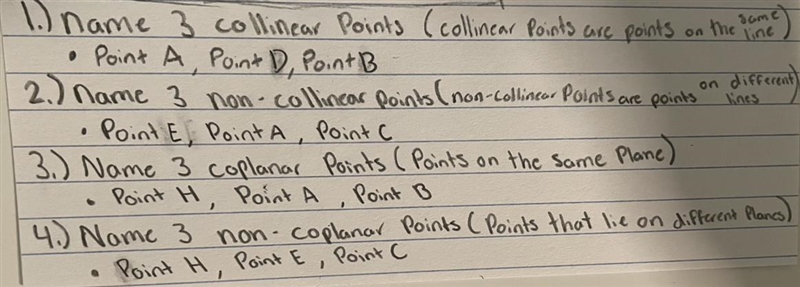 1.) Name 3 collinear Points (collinear Points are points on the same line)
• Point A, Point D, Point B
2.) Name 3 non-collinear points (non-collinear Points are points on different lines)
• Point E, Point A, Point C
3.) Name 3 coplanar Points (Points on the same Plane)
• Point H, Point A, Point B
4.) Name 3 non-coplanar Points (Points that lie on different Planes)
• Point H, Point E, Point C